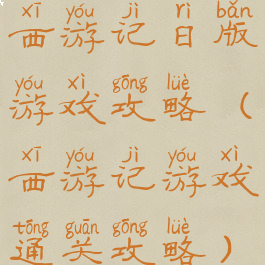 xī yóu jì rì bǎn
西游记日版
yóu xì gōng lüè
游戏攻略（
xī yóu jì yóu xì
西游记游戏
tōng guān gōng lüè
通关攻略）